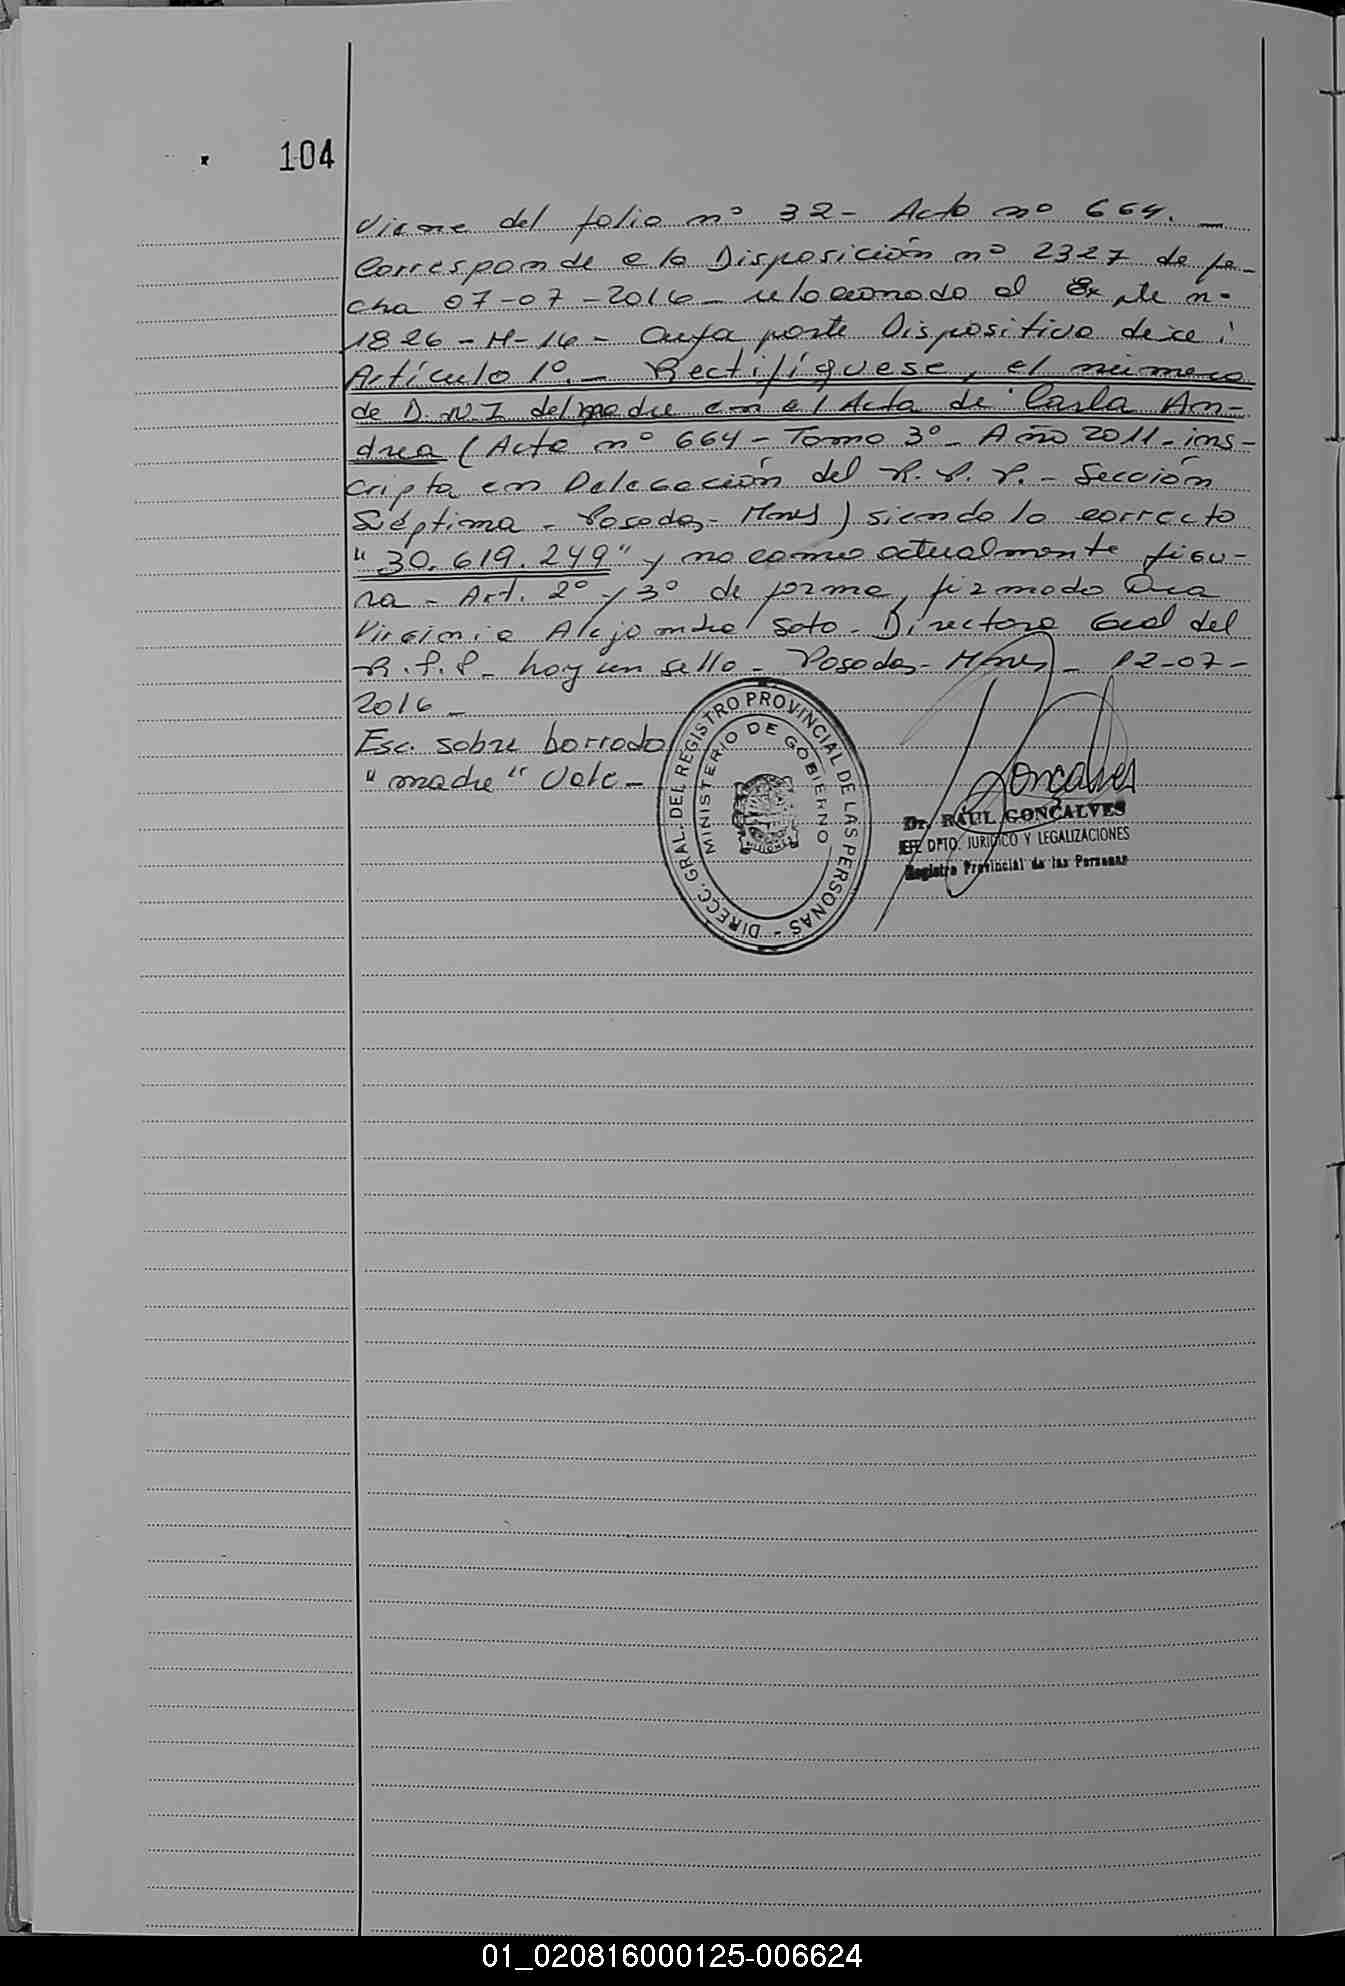 104
Viene del folio nº 32 - Acta nº 664. -
Corresponde a la Disposición nº 2327 de fe-
cha 07-07-2016 - relacionado al Expte nº
1826-H-16 - Cuya parte Dispositiva dice:
Artículo 1º. - Rectifíquese, el número
de D.N.I del madre en el Acta de Carla An-
drea (Acta nº 664 - Tomo 3º - Año 2011 - ins-
cripta en Delegación del R.P.P. - Sección
Séptima - Posadas - Mnes) siendo lo correcto
"30.619.249" y no como actualmente figu-
ra - Art. 2º y 3º de forma, firmado Dra
Virginia Alejandra Soto - Directora Gral del
R.P.P - hay un sello - Posadas - Mnes - 12-07-
2016 -
Esc. sobre borrado
"madre" Vale -
DIRECC. GRAL. DEL REGISTRO PROVINCIAL DE LAS PERSONAS -
MINISTERIO DE GOBIERNO
MISIONES
Goncalves
Dr. RAUL GONCALVES
JEFE DPTO. JURIDICO Y LEGALIZACIONES
Registro Provincial de las Personas
01_020816000125-006624